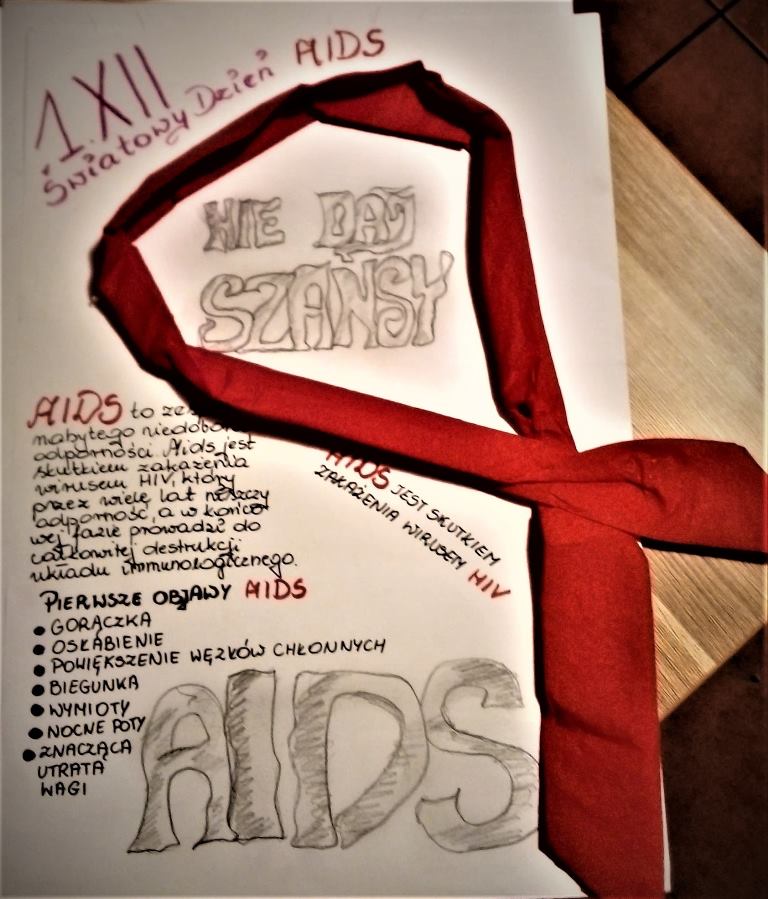 1.XII
Światowy Dzień AIDS
NIE DAJ
SZANSY
AIDS to
nabytego
odporności. Aids jest
skutkiem zakażenia
wirusem HIV, który
przez wiele lat niszczy
odporność, a w końco-
wej fazie prowadzi do
całkowitej destrukcji
układu immunologicznego.
AIDS JEST SKUTKIEM
ZAKAŻENIA WIRUSEM HIV
PIERWSZE OBJAWY AIDS
• GORĄCZKA
• OSŁABIENIE
• POWIĘKSZENIE WĘZŁÓW CHŁONNYCH
• BIEGUNKA
• WYMIOTY
• NOCNE POTY
• ZNACZĄCA
UTRATA
WAGI
AIDS